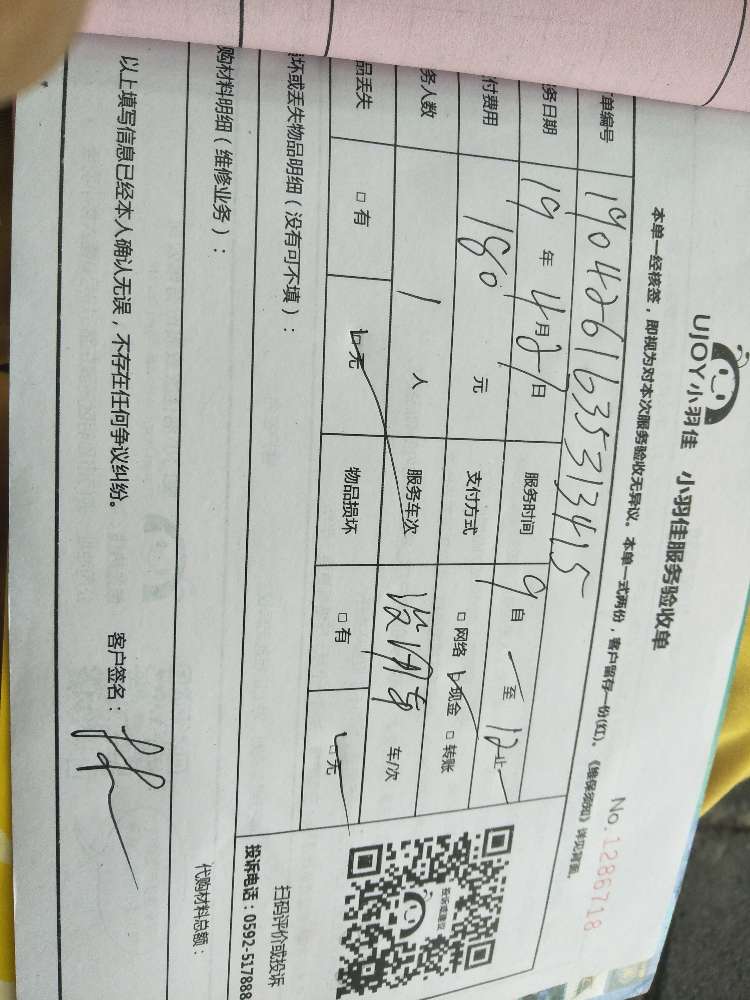 UJOY小羽佳 小羽佳服务验收单
No.1286718
本单一经核签，即视为对本次服务验收无异议。本单一式两份，客户留存一份(红)。《维保须知》详见背面。
单编号 1904261635313415
务日期 19年4月27日 服务时间 9自 至12止
付费用 180元 支付方式 □网络 □现金 □转账
务人数 1人 服务车次 没用车 车/次
品丢失 □有 □无 物品损坏 □有 □无
坏或丢失物品明细（没有可不填）：
扫码评价或投诉
投诉电话：0592-517888
购材料明细（维修业务）：
代购材料总额：
以上填写信息已经本人确认无误，不存在任何争议纠纷。 客户签名：